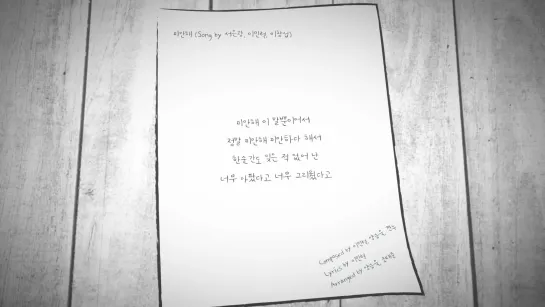 미안해 (Song by 서은광, 이민혁, 이창섭)
미안해 이 말뿐이어서
정말 미안해 미안하다 해서
한순간도 잊은 적 없어 난
너무 아팠다고 너무 그리웠다고
Composed by 이민혁,
Lyrics by 이민혁
Arranged by